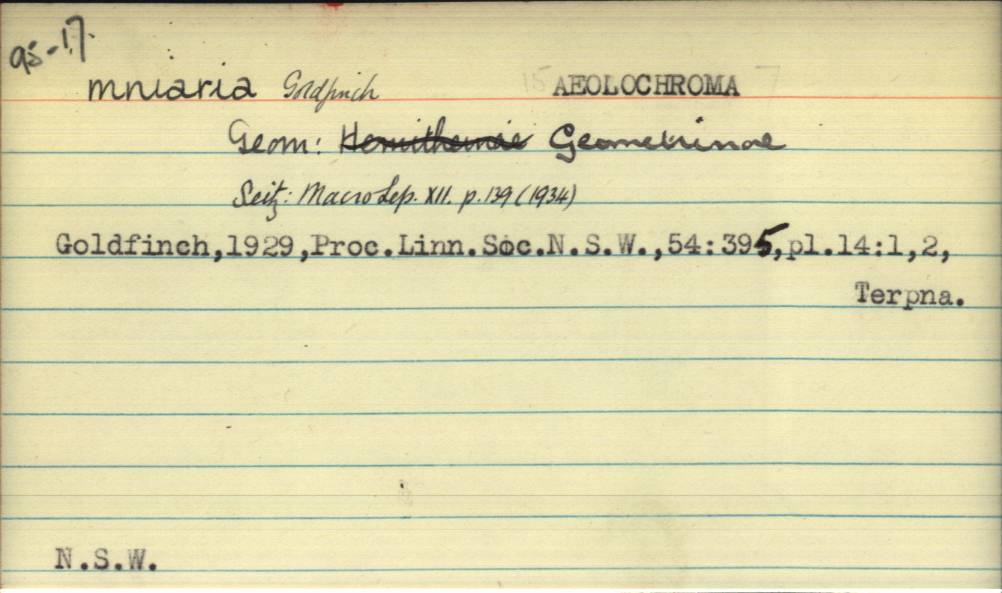 95-17.
mniaria Goldfinch AEOLOCHROMA
Geom: Hemitheinae Geometrinae
Seitz: Macro Lep. XII. p. 139 (1934)
Goldfinch,1929,Proc.Linn.Soc.N.S.W.,54:395,pl.14:1,2,
Terpna.
N.S.W.